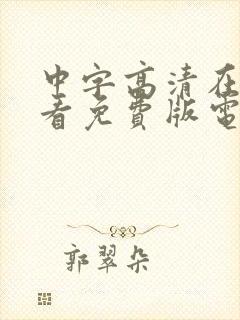 中字高清在
看免费版電
郭翠朵